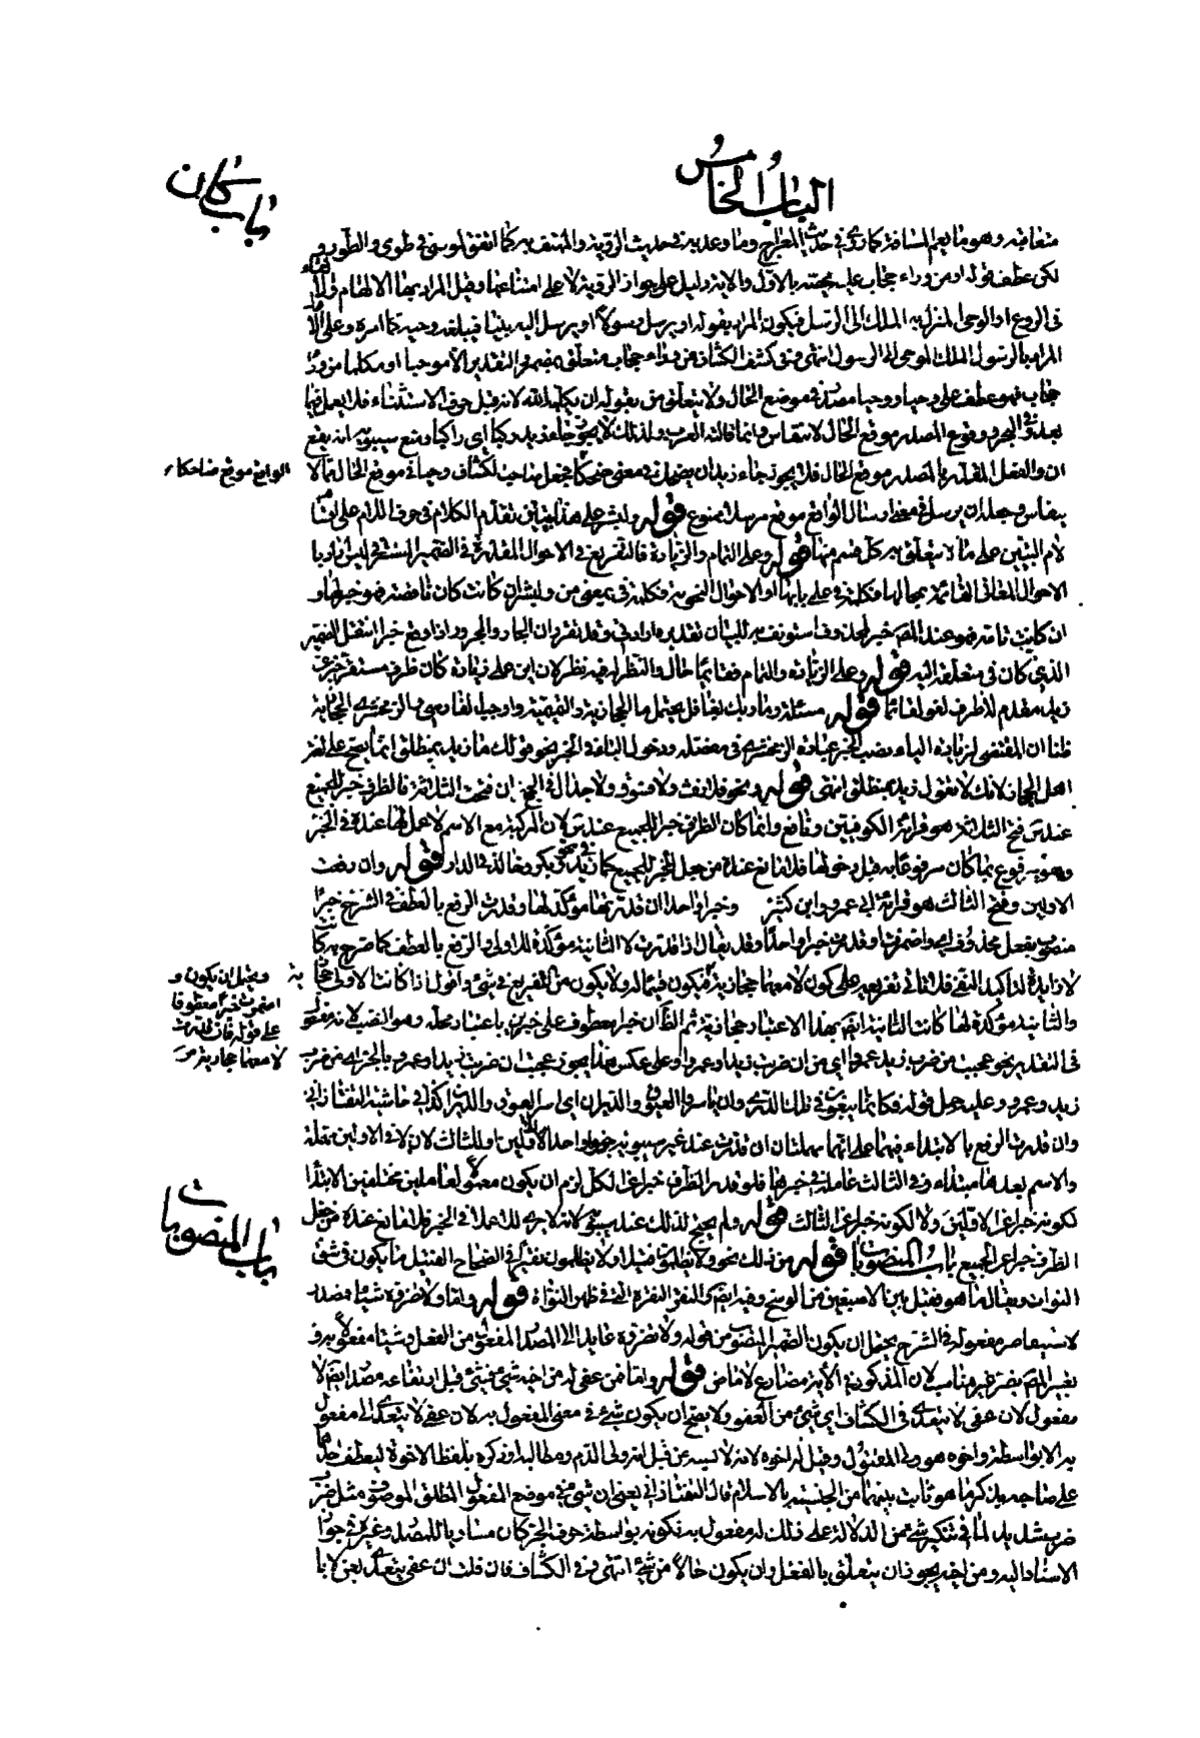 الباب الخامس
باب كان
متعاقبه وهو ما يعم المشافهة كما روى في حديث المعراج وما وعد به في حديث الرؤية والمهتف به كما اتفق لموسى في طوى والطور و
لكن عطف قوله او من وراء حجاب عليه يخصه بالاول والاية دليل على جواز الرؤية لا على امتناعها وقيل المراد بها الالهام والالقاء
في الروع او الوحي المنزل به الملك الى الرسل فيكون المراد بقوله او يرسل رسولا او يرسل اليه نبيا فيبلغه وحيه كما امره وعلى الاول
المراد بالرسول الملك الموحى الى الرسول انتهى وفي كشف الكشاف من وراء حجاب متعلق بمضمر والتقدير الا موحيا او مكلما من وراء
حجاب فهو عطف على وحيا ووحيا مصدر في موضع الحال ولا يتعلق من بقوله ان يكلمه الله لانه قبل حرف الاستثناء فلا يعمل فيما
بعده ووقوع المصدر موقع الحال لا ينقاس وانما قالته العرب ولذلك لا يجوز جاء زيد بكاء اي باكيا ومنع سيبويه انه يقع
ان والفعل المقدر بالمصدر موقع الحال فلا يجوز جاء زيد ان يضحك في معنى ضحكا فجعل صاحب الكشاف وحيا في موضع الحال مما لا
الواقع موقع ضاحكا
ينقاس وجعله ان يرسل في معنى ارسال الواقع موقع مرسلا ممنوع قوله
لام التبيين على ما لا يتعلق به كل منهما قوله وعلى التمام والزيادة فالتفريع في الاحوال المقدرة في الضمير المستتر في
ان كانت تامة فهو عند المص خبر لمحذوف استونف به للبيان تقديره ارادتي وقد تقرر ان الجار والمجرور اذا وقع خبرا انتقل الضمير
الذي كان في متعلقه اليه قوله وعلى الزيادة والتمام فقائما حال والنظر فيه نظر لان اين على زيادة كان ظرف مستقر خبر عن
زيد مقدم لا ظرف لغو لقائما قوله مسئلة وما ربك بغافل يحتمل ما الحجازية والتميمية واوجب الفارسي والزمخشري الحجازية
ظنا ان المقتضي لزيادة الباء نصب الخبر عبارة الزمخشري في مفصله ودخول الباء في الخبر نحو قولك ما زيد بمنطلق انما يصح على لغة
اهل الحجاز لانك لا تقول زيد بمنطلق انتهى قوله ونحو فلا رفث ولا فسوق ولا جدال في الحج ان فتحت الثلاثة فالظرف خبر للجميع
عند س فتح الثلاثة هو قراءة الكوفيين ونافع وانما كان الظرف خبر الجميع عند س لان المركبة مع الاسم لا عمل لها عنده في الخبر
وهو مرفوع بما كان مرفوعا به قبل دخولها فلا مانع عنده من جعل الخبر للجميع كما في زيد وعمرو وبكر وخالد في الدار قوله وان رفعت
الاولين وفتح الثالث هو قراءة ابي عمرو وابن كثير وخبرا واحدا ان قدرتهما مؤكدة لها وقدرت الرفع بالعطف في الشرح خبرا
منصوب بفعل محذوف اي واضمرت او قدرت خبرا واحدا وقد يقال اذا قدرت لا الثانية مؤكدة للاولى والرفع بالعطف كما صرح به كانت
لا زايدة لتاكيد النفي فلا يتأتى تفريعه على كون لا معها حجازية
ويحتمل ان يكون و
اضمرت خبرا معطوفا
على قوله فان قدرت
لا معها حجازية
والثانية مؤكدة لها كانت الثانية ايضا بهذا الاعتبار حجازية ثم الظ ان خبرا معطوف على خبرين باعتبار محله وهو النصب لانه مفعول
في التقدير نحو عجبت من ضرب زيد عمروا اي من ان ضرب زيد عمروا وعلى عكس هذا يجوز عجبت ان ضرب زيد وعمرو بالجر اي من ضرب
زيد وعمرو وعليه حمل قوله
وان قدرت الرفع بالابتداء فيهما على انهما مهملتان ان قدرت عند غير سيبويه خبرا واحدا للاولين او للثالث لان لا في الاولين مهملة
والاسم بعدها مبتداء وفي الثالث عاملة في خبرها فلو قدر الظرف خبرا عن الكل لزم ان يكون معمولا لعاملين مختلفين الابتداء
لكونه خبرا عن الاولين ولا لكونه خبرا عن الثالث قوله ولم يحتج لذلك عند سيبويه لانه لا يرى للا عملا في الخبر فلا مانع عنده من جعل
باب المنصوبات
الظرف خبرا عن الجميع باب المنصوبات قوله من ذلك نحو ولا يظلمون فتيلا ولا يظلمون نقيرا في الصحاح الفتيل ما يكون في شق
النواة ويقال ما هو يفتل بين الاصبعين من الوسخ وفيه ايضا والنقر النقرة التي في ظهر النواة قوله واما ولا تضروه شيئا فمصدر
لاستيفاء ضر مفعوله في الشرح يحتمل ان يكون الضمير المنصوب من قوله ولا تضروه عايدا الى المصدر المفهوم من الفعل وشيئا مفعولا به و
تعبير المص بضر غير مناسب لان المذكور في الاية مضارع لا ماض قوله واما فمن عفي له من اخيه شيء فشيء قبل ارتفاعه مصدر ايضا لا
مفعول لان عفى لا يتعدى في الكشاف اي شيء من العفو ولا يصح ان يكون شيء في معنى المفعول به لان عفى لا يتعدى الى مفعول
به الا بواسطة واخوه هو ولي المقتول وقيل له اخوه لانه لابسه من قبل انه ولي الدم ومطالبه او ذكره بلفظ الاخوة ليعطف احدهما
على صاحبه بذكر ما هو ثابت بينهما من الجنسية والاسلام قال التفتازاني يعني ان شيء في موضع المفعول المطلق الموصوف مثل ضرب
ضرب شديد لما في تنكير شيء من الدلالة على ذلك له مفعول به بكونه بواسطة حرف الجر كان مساويا للمصدر وغيره في جواز
الاسناد اليه ومن اخيه يجوز ان يتعلق بالفعل وان يكون حالا من شيء انتهى وفي الكشاف فان قلت ان عفى يتعدى بعن لا با